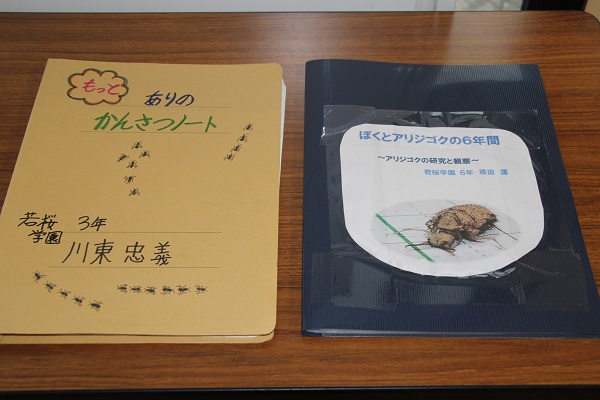 もっと
ありの
かんさつノート
若桜
学園
3年
川東 忠義
ぼくとアリジゴクの6年間
~アリジゴクの研究と観察~
若桜学園 6年
蓮